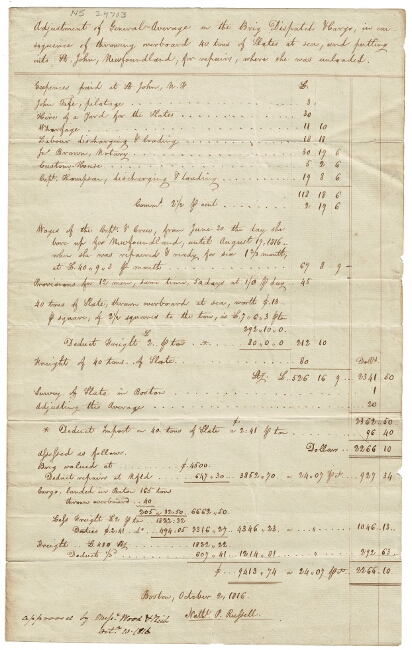 NS 29703
Adjustment of General Average on the Brig Dispatch & Cargo, in con
sequence of throwing overboard 40 tons of Slates at sea, and putting
into St. John, Newfoundland, for repairs, where she was unloaded.
Expences paid at St John, N. F £
John Fife, pilotage 3
Hire of a Yard for the Slates 30
Wharfage 11 10
Labour discharging & loading 18 18
Jno Brown, Notary 30 19 6
Custom-House 5 2 6
Capt. Thompson, discharging & loading 19 8 6
118 18 6
Comms. 2½ P cent 2 19 6
Wages of the Capt. & Crew, from June 20 the day she
bore up for Newfoundland, until August 17, 1816
when she was repaired & ready for sea
at £40..9..3 P month 67 8 9
Provisions for 12 men, same time, at 1/3 P day 45
40 tons of Slate, thrown overboard at sea, worth $13
P square, of 2½ squares to the ton, is £7..0..3 P ton
£
292.10.0
Deduct Freight 2 P ton 80.0.0 212 10
Freight of 40 tons of Slate 80 Dolls
Stg £526 16 9 2341 50
Survey of Slate in Boston 1
Adjusting the Average 20
$ 2362 50
* Deduct Import on 40 tons of Slate a 2.41 P ton 96 40
Dollars 2266 10
Assessed as follows.
Brig valued at $4500
Deduct repairs at Nfld 647.30 3852.70 a 24.07 P ct 927 34
Cargo, landed in Boston 165 tons
thrown overboard 40
205 a 32.50 6662.50
Less Freight £2 P ton 1822.22
Duties $2.41 494.05 2316.27 4346.23 1046.13
Freight £410 Stg 1822.22
Deduct ⅓ 607.41 1214.81 292.63
$ 9413.74 a 24.07 P ct 2266.10
Boston, October 2, 1816.
Nathl P. Russell.
approved by Messrs Wood &
Octr 1816